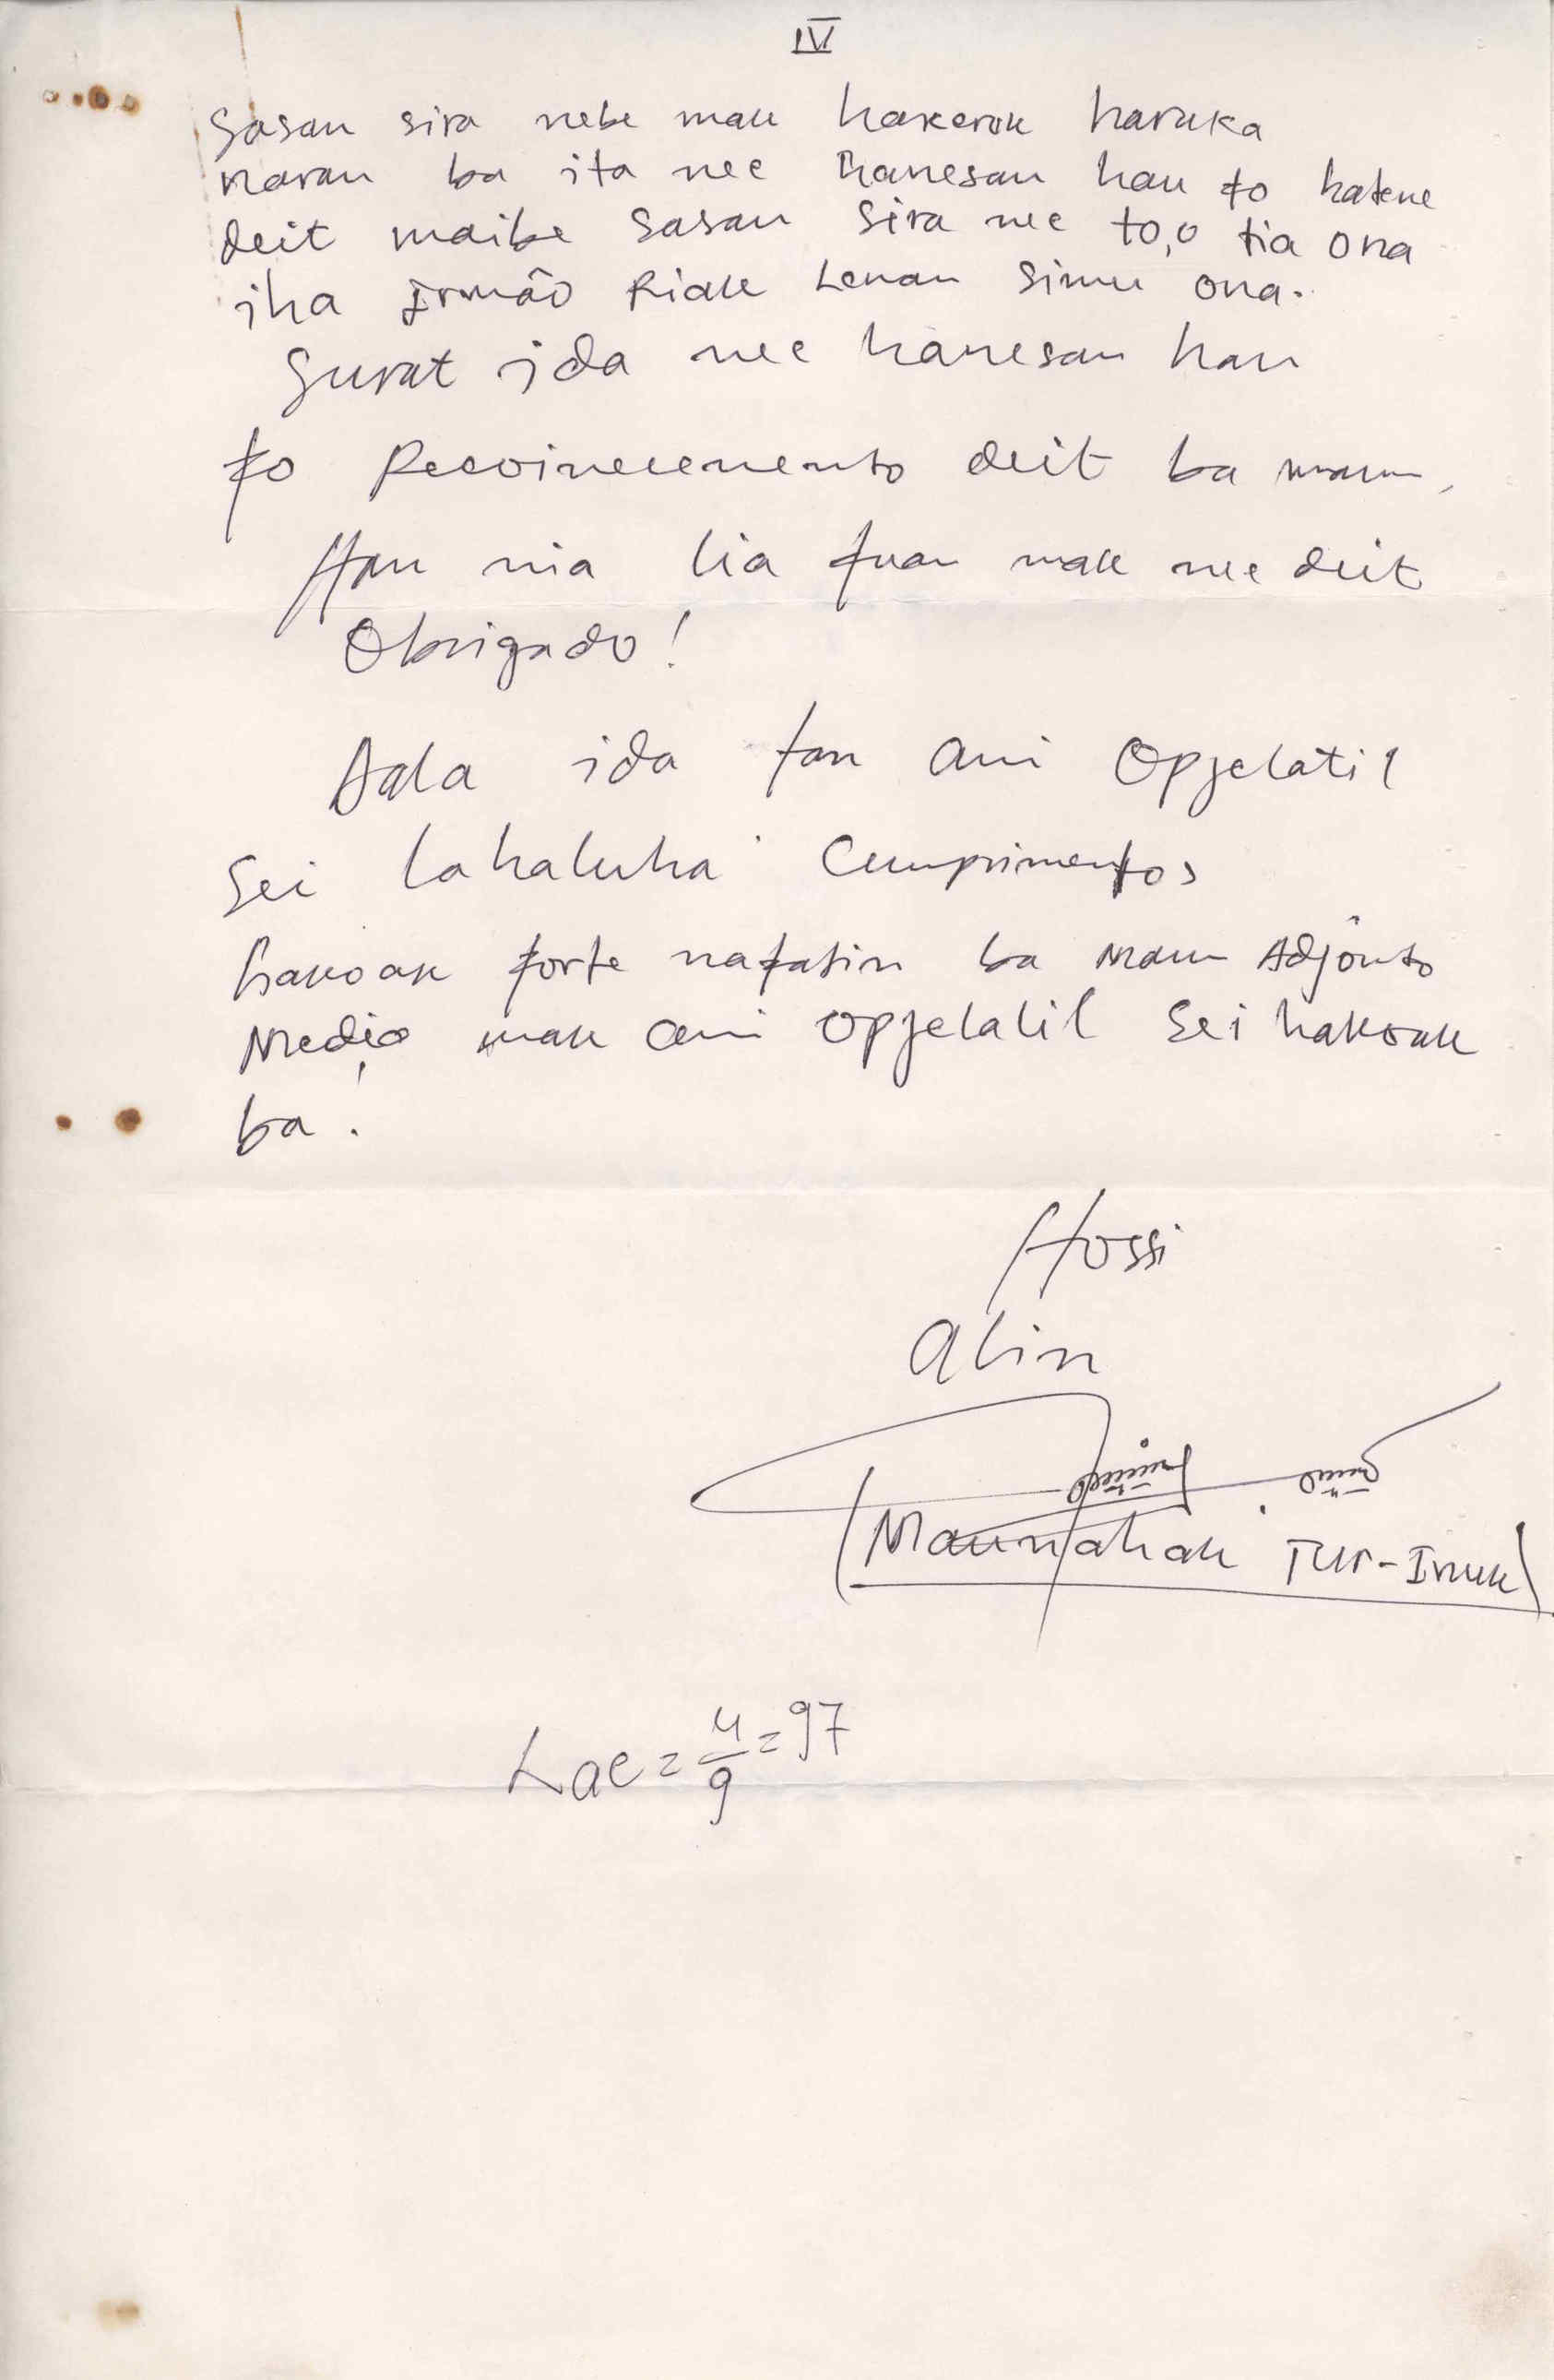 IV
Sasan sira nebe mak hakerek haruka
naran ba ita nee hanesan hau fo hatene
deit maibe sasan sira nee to,o tia ona
iha Irmão Riak Leman simu ona.
Surat ida nee hanesan hau
fo Recoinecemento deit ba maun,
Hau nia lia fuan mak nee deit
Obrigado!
Dala ida tan ami Opjelatil
Sei lahaluha Cumprimentos
hakoak forte nafatin ba maun Adjônto
Medio mak ami opjelatil sei hakoak
ba!
Hossi
Alin
(Maunahak Tur-Inuk)
Lae = 4/9 = 97